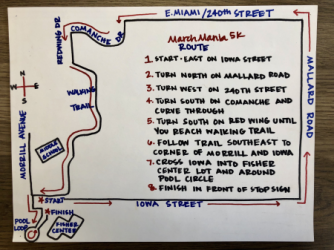 E. MIAMI/240TH STREET
REDWING DR
COMANCHE DR
MarchMania 5K
ROUTE
1. START- EAST ON IOWA STREET
2. TURN NORTH ON MALLARD ROAD
3. TURN WEST ON 240TH STREET
4. TURN SOUTH ON COMANCHE AND
CURVE THROUGH
5. TURN SOUTH ON RED WING UNTIL
YOU REACH WALKING TRAIL
6. FOLLOW TRAIL SOUTHEAST TO
CORNER OF MORRILL AND IOWA
7. CROSS IOWA INTO FISHER
CENTER LOT AND AROUND
POOL CIRCLE
8. FINISH IN FRONT OF STOP SIGN
MALLARD ROAD
N
W
E
S
WALKING
TRAIL
MORRILL AVENUE
MIDDLE
SCHOOL
START
IOWA STREET
FINISH
POOL
LOOP
FISHER
CENTER